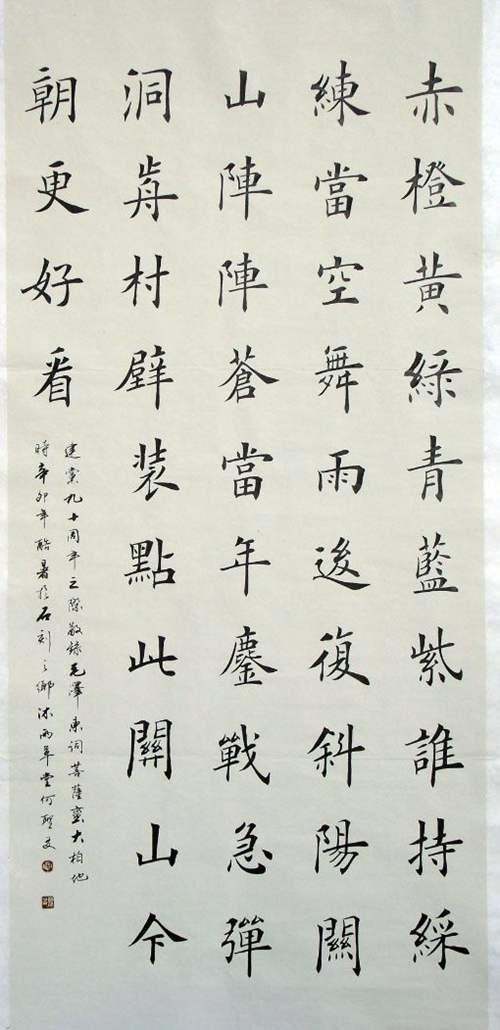 赤橙黄綠青藍紫誰持綵
練當空舞雨後復斜陽關
山陣陣蒼當年鏖戰急彈
洞歬村壁装點此關山今
朝更好看
建黨九十周年之際敬錄毛澤東詞菩薩蠻大柏地
時辛卯年酷暑於石刻之鄉沐雨草堂何